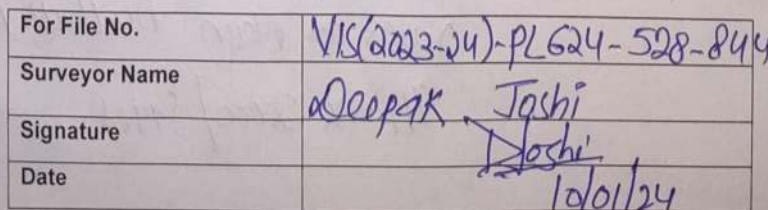 For File No. VIS(2023-24)-PL624-528-844
Surveyor Name Deepak Joshi
Signature DJoshi
Date 10/01/24